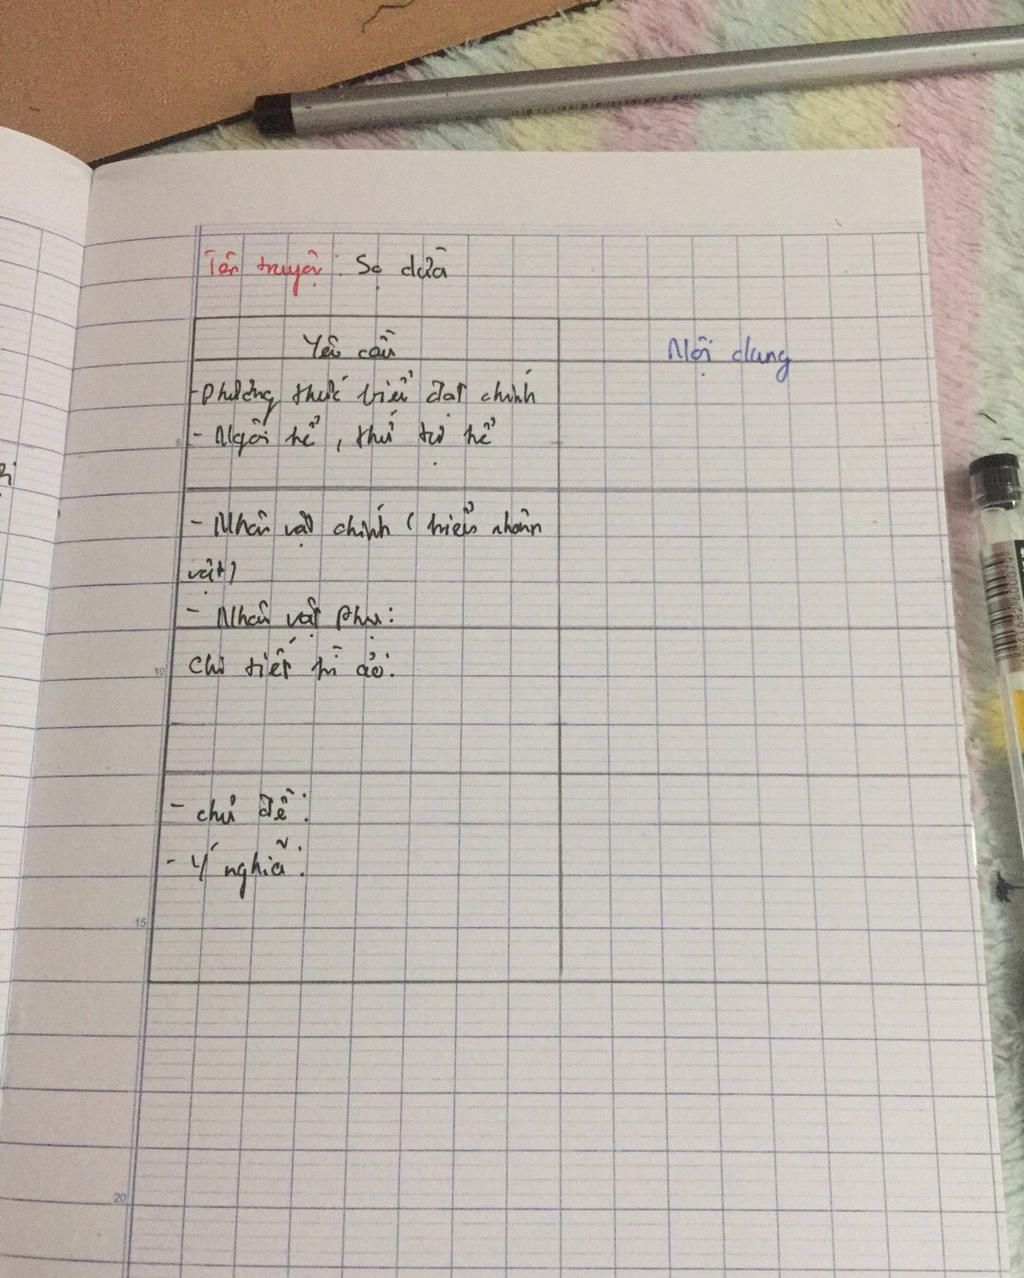 Tên truyện: Sọ dừa
Yêu cầu
Nội dung
- Phương thức biểu đạt chính
- Ngôi kể, thứ tự kể
5
- Nhân vật chính ( kiểu nhân
vật)
- Nhân vật phụ:
10
Chi tiết kì ảo:
- chủ đề:
- Ý nghĩa:
15
20